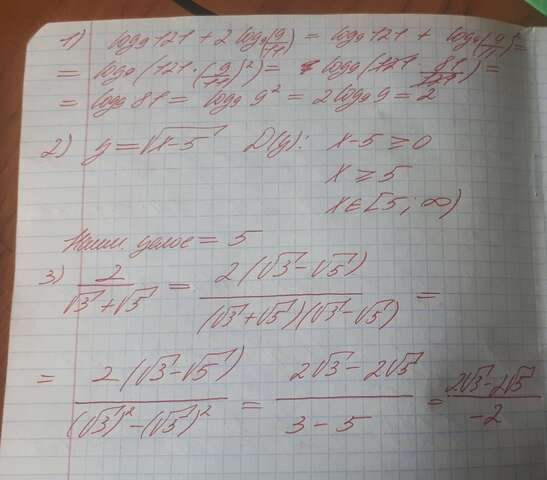 1) log₉121 + 2log₉(9/11) = log₉121 + log₉(9/11)² =
= log₉(121·(9/11)²) = log₉(121·81/121) =
= log₉81 = log₉9² = 2log₉9 = 2
2) y = √(x-5) D(y): x-5 ≥ 0
x ≥ 5
x ∈ [5; ∞)
Наим. целое = 5
3) 2/(√3+√5) = 2(√3-√5)/((√3+√5)(√3-√5)) =
= 2(√3-√5)/((√3)²-(√5)²) = (2√3-2√5)/(3-5) = (2√3-2√5)/(-2)